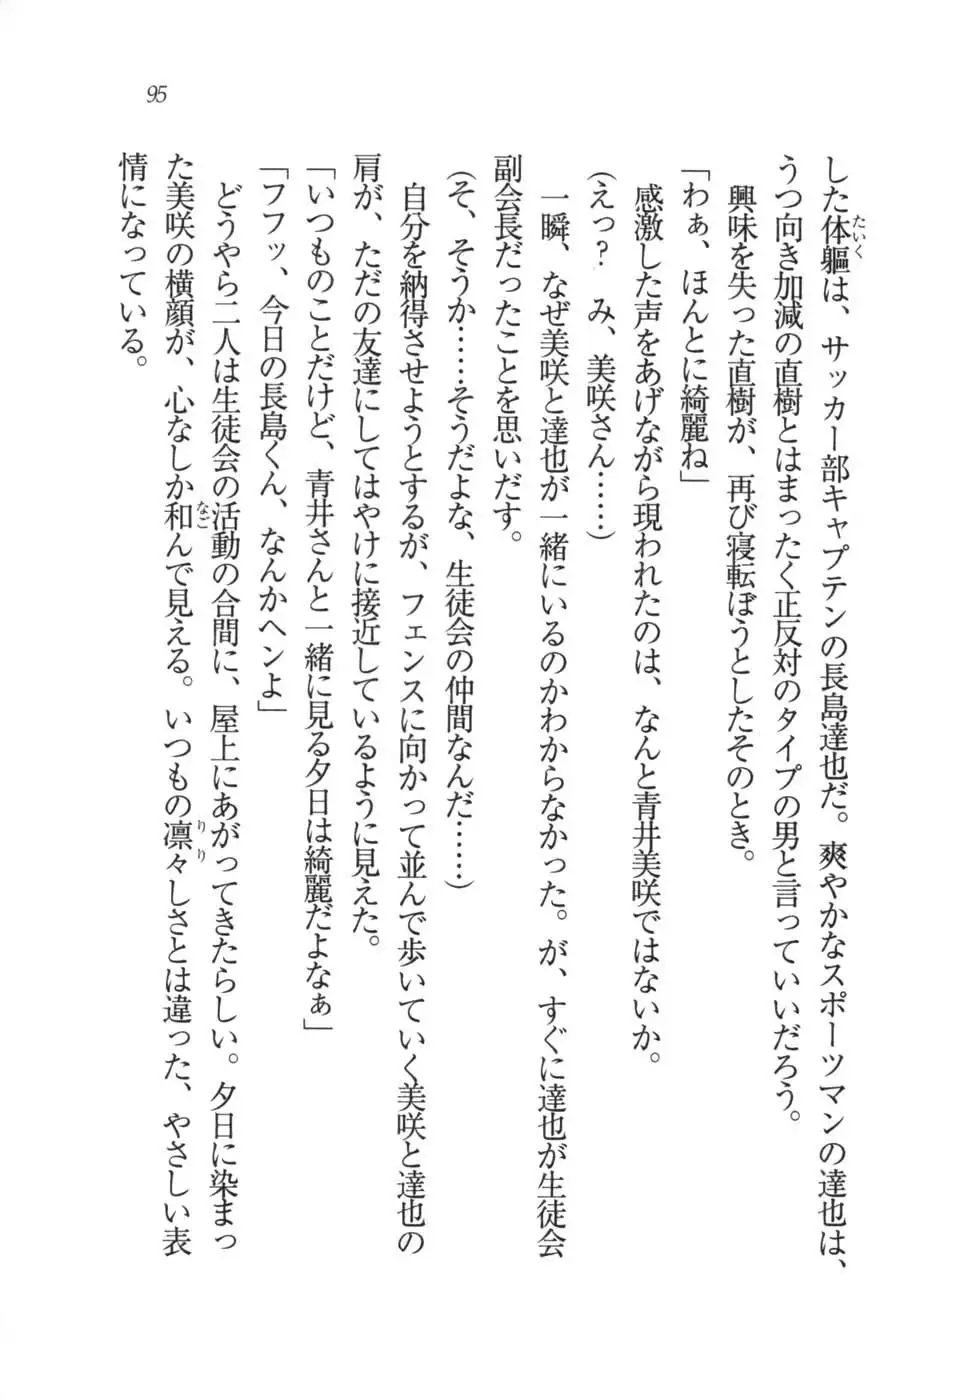 95
した体軀は、サッカー部キャプテンの長島達也だ。爽やかなスポーツマンの達也は、
たいく
うつ向き加減の直樹とはまったく正反対のタイプの男と言っていいだろう。
興味を失った直樹が、再び寝転ぼうとしたそのとき。
「わぁ、ほんとに綺麗ね」
感激した声をあげながら現われたのは、なんと青井美咲ではないか。
（えっ？　み、美咲さん……）
一瞬、なぜ美咲と達也が一緒にいるのかわからなかった。が、すぐに達也が生徒会
副会長だったことを思いだす。
（そ、そうか……そうだよな、生徒会の仲間なんだ……）
自分を納得させようとするが、フェンスに向かって並んで歩いていく美咲と達也の
肩が、ただの友達にしてはやけに接近しているように見えた。
「いつものことだけど、青井さんと一緒に見る夕日は綺麗だよなぁ」
「フフッ、今日の長島くん、なんかヘンよ」
どうやら二人は生徒会の活動の合間に、屋上にあがってきたらしい。夕日に染まっ
た美咲の横顔が、心なしか和んで見える。いつもの凛々しさとは違った、やさしい表
なご
りり
情になっている。